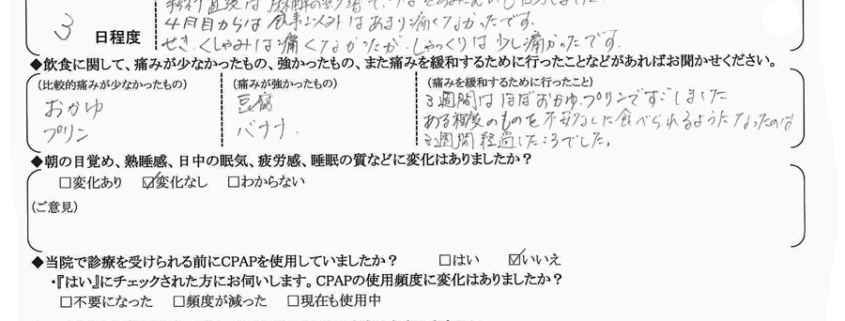 4月目からは食事以外はあまり痛くなかったです。
3 日程度
せき、くしゃみは痛くなかったが、しゃっくりは少し痛かったです。
◆飲食に関して、痛みが少なかったもの、強かったもの、また痛みを緩和するために行ったことなどがあればお聞かせください。
(比較的痛みが少なかったもの) (痛みが強かったもの) (痛みを緩和するために行ったこと)
おかゆ 豆腐 3週間はほぼおかゆ、プリンですごしました
プリン バナナ. ある程度のものを不自由なく食べられるようになったのは
3週間経過したころでした。
◆朝の目覚め、熟睡感、日中の眠気、疲労感、睡眠の質などに変化はありましたか?
□変化あり ☑変化なし □わからない
(ご意見)
◆当院で診療を受けられる前にCPAPを使用していましたか? □はい ☑いいえ
・『はい』にチェックされた方にお伺いします。CPAPの使用頻度に変化はありましたか?
□不要になった □頻度が減った □現在も使用中